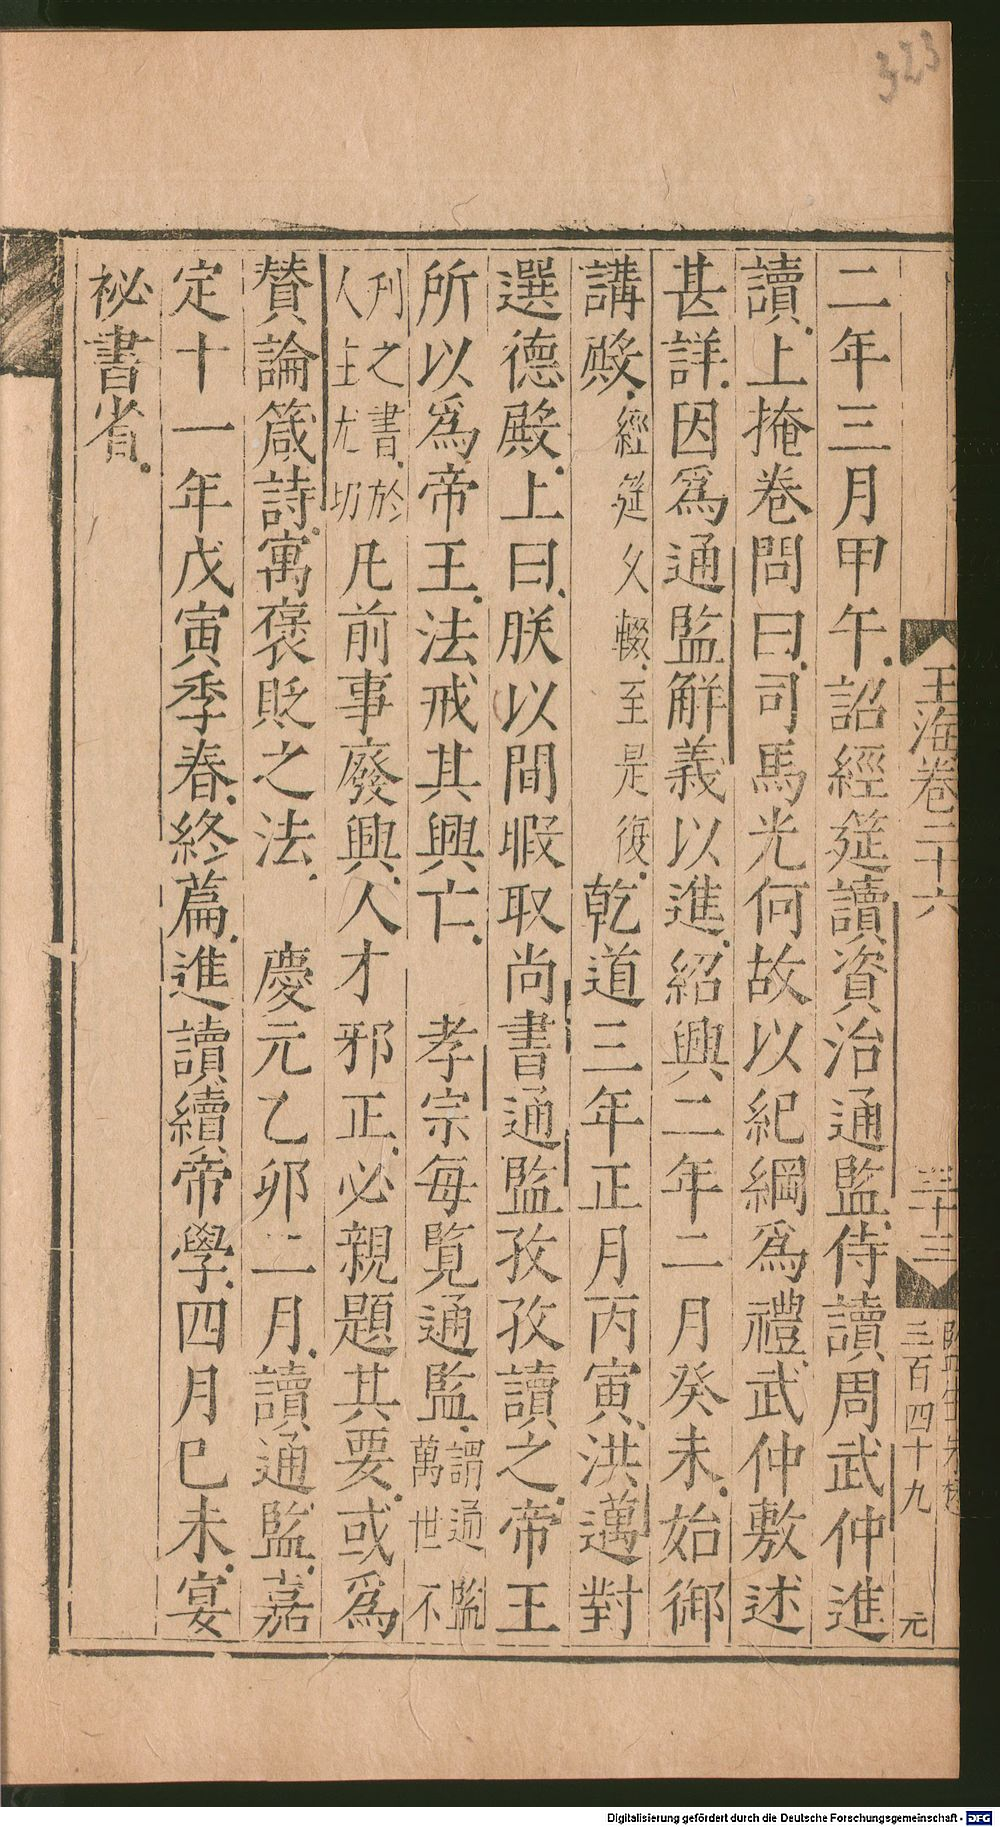 323
玉海卷二十六
三十三
三百四十九
元
二年三月甲午詔經筵讀資治通監侍讀周武仲進
讀上掩卷問曰司馬光何故以紀綱爲禮武仲敷述
甚詳因爲通監解義以進紹興二年二月癸未始御
講殿經筵久輟至是復乾道三年正月丙寅洪邁對
選德殿上曰朕以間暇取尚書通監孜孜讀之帝王
所以爲帝王法戒其興亡 孝宗每覧通監謂通監萬世不
刋之書於人主尤切凡前事廢興人才邪正必親題其要或爲
賛論箴詩寓褒貶之法 慶元乙卯二月讀通監嘉
定十一年戊寅季春終篇進讀續帝學四月巳未宴
祕書省
Digitalisierung gefördert durch die Deutsche Forschungsgemeinschaft - DFG